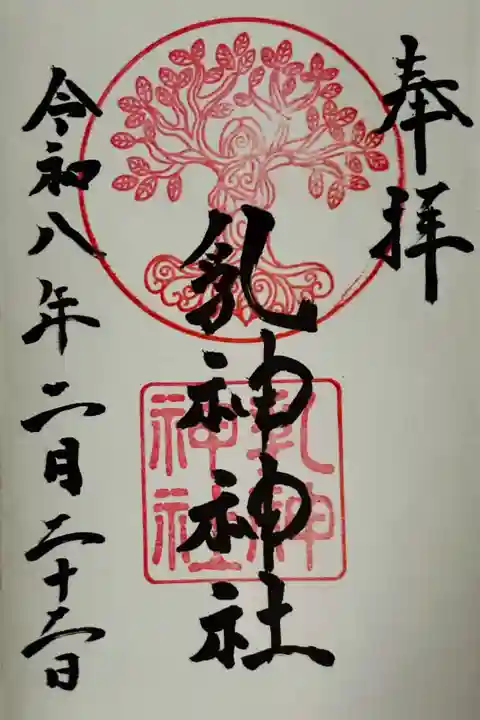 奉拝
乳神神社
乳神
神社
令和八年二月二十六日